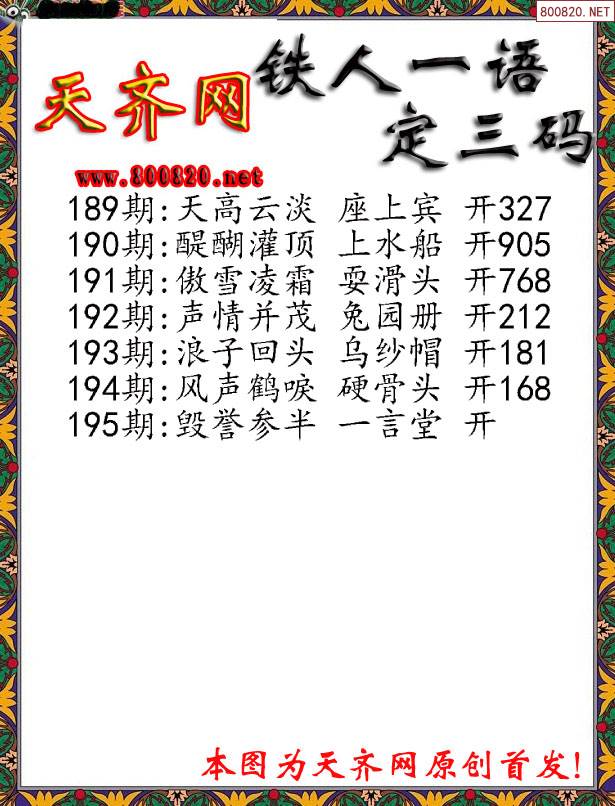 800820.NET
铁人一语
天齐网
定三码
www.800820.net
189期:天高云淡 座上宾 开327
190期:醍醐灌顶 上水船 开905
191期:傲雪凌霜 耍滑头 开768
192期:声情并茂 兔园册 开212
193期:浪子回头 乌纱帽 开181
194期:风声鹤唳 硬骨头 开168
195期:毁誉参半 一言堂 开
本图为天齐网原创首发!